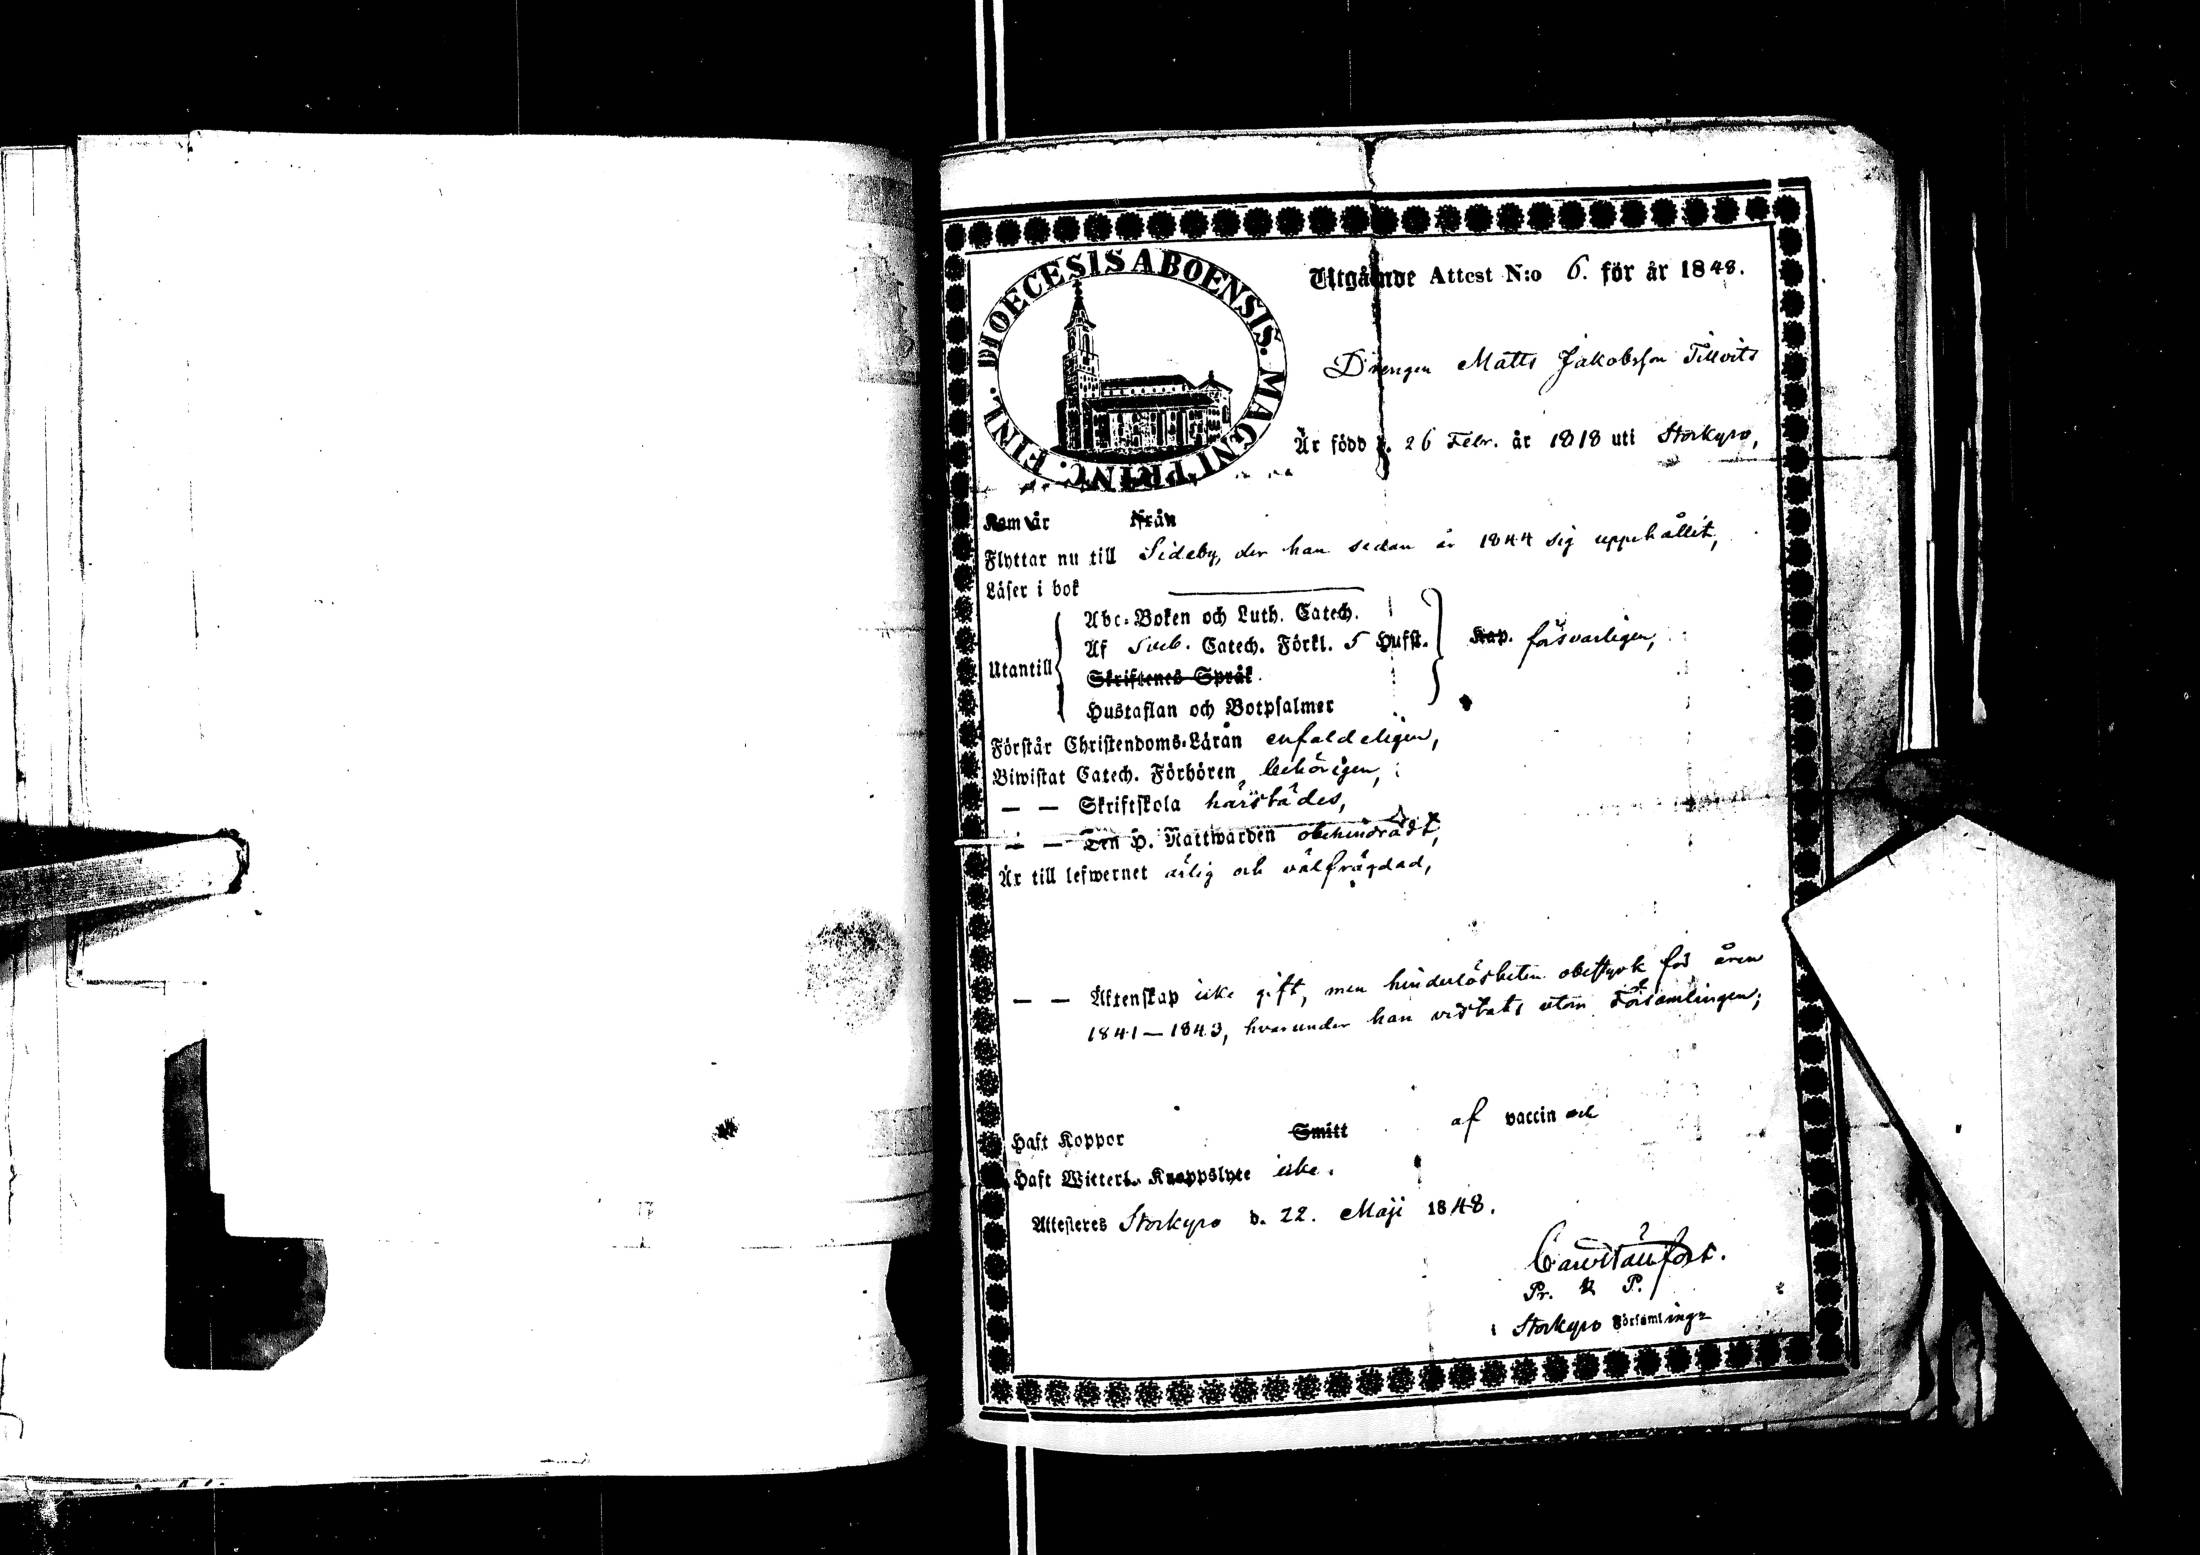 DIOECESIS ABOENSIS. MAGNI PRINC. FINL.
Utgående Attest N:o 6. för år 1848.
Drengen Matts Jakobsson Tillvits
Är född d. 26 Febr. år 1818 uti Storkyro,
Kom år från
Flyttar nu till Sideby, der han sedan år 1844 sig uppehållit,
Läser i bok
Abc-Boken och Luth. Catech.
Af Sveb. Catech. Förkl. 5 Hufst. Kap. försvarligen,
Utantill
Skriftenes Språk
Hustaflan och Botpsalmer
Förstår Christendoms-Läran enfaldeligen,
Biwistat Catech. Förhören behörigen,
— — Skriftskola härstädes,
— — Den H. Nattwarden obehindradt,
Är till lefwernet ärlig och välfrägdad,
— — Äktenskap icke gift, men hinderlösheten obestyrkt för åren
1841—1843, hvarunder han vistats utom Församlingen;
Haft Koppor Smitt af vaccin och
Haft Witterl. Knappslyte icke.
Attesteras Storkyro d. 22. Maji 1848.
Pr. & P.
i Storkyro Församling